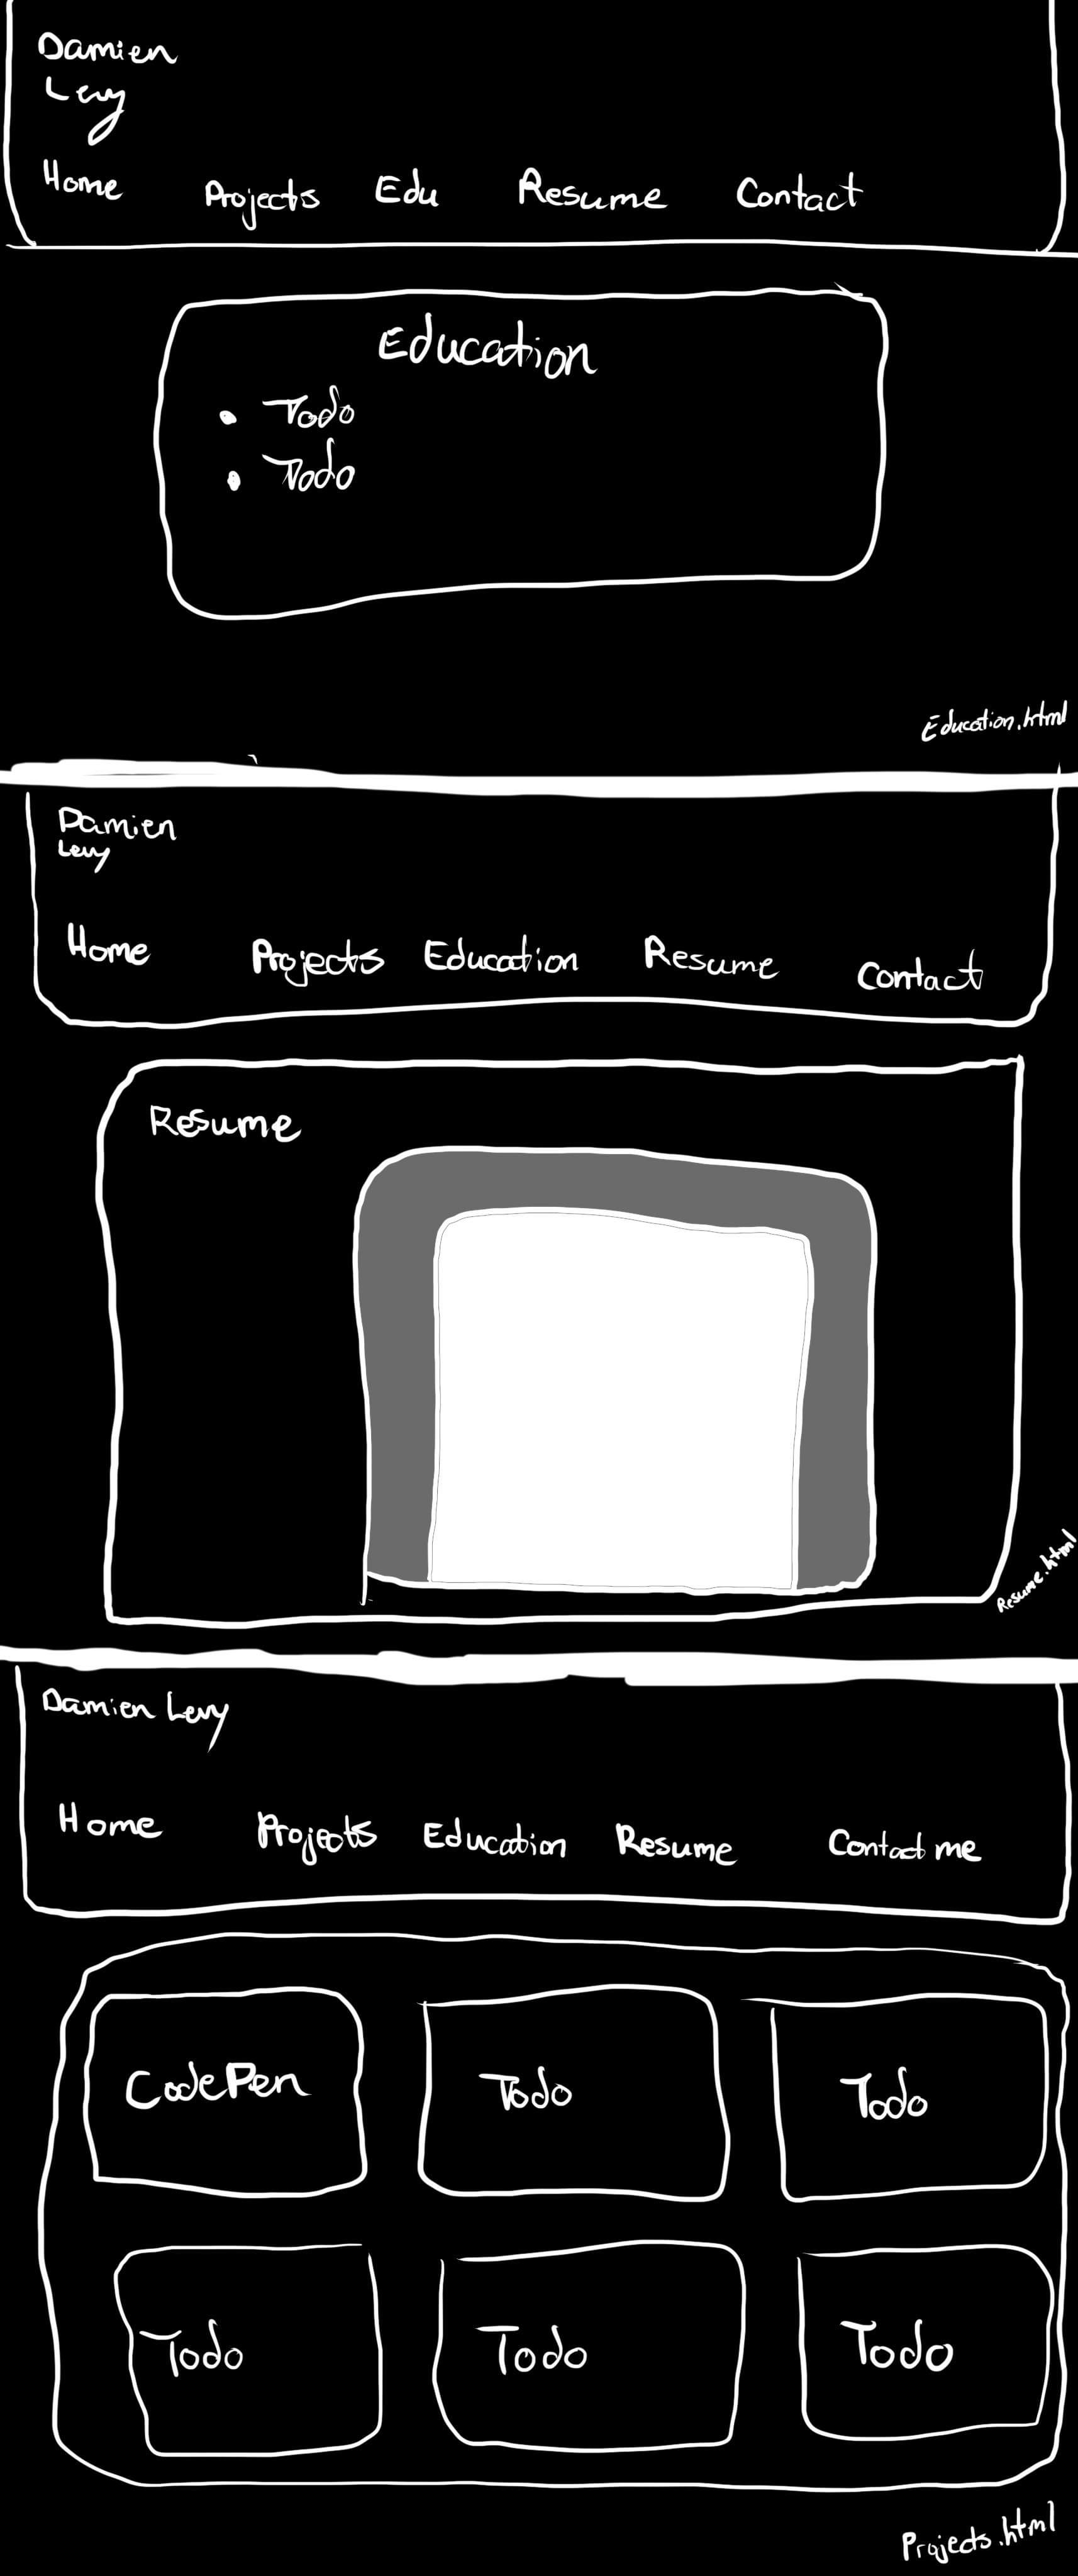 Damien
Levy
Home Projects Edu Resume Contact
Education
• Todo
• Todo
Education.html
Damien
Levy
Home Projects Education Resume Contact
Resume
Resume.html
Damien Levy
Home Projects Education Resume Contact me
CodePen Todo Todo
Todo Todo Todo
Projects.html